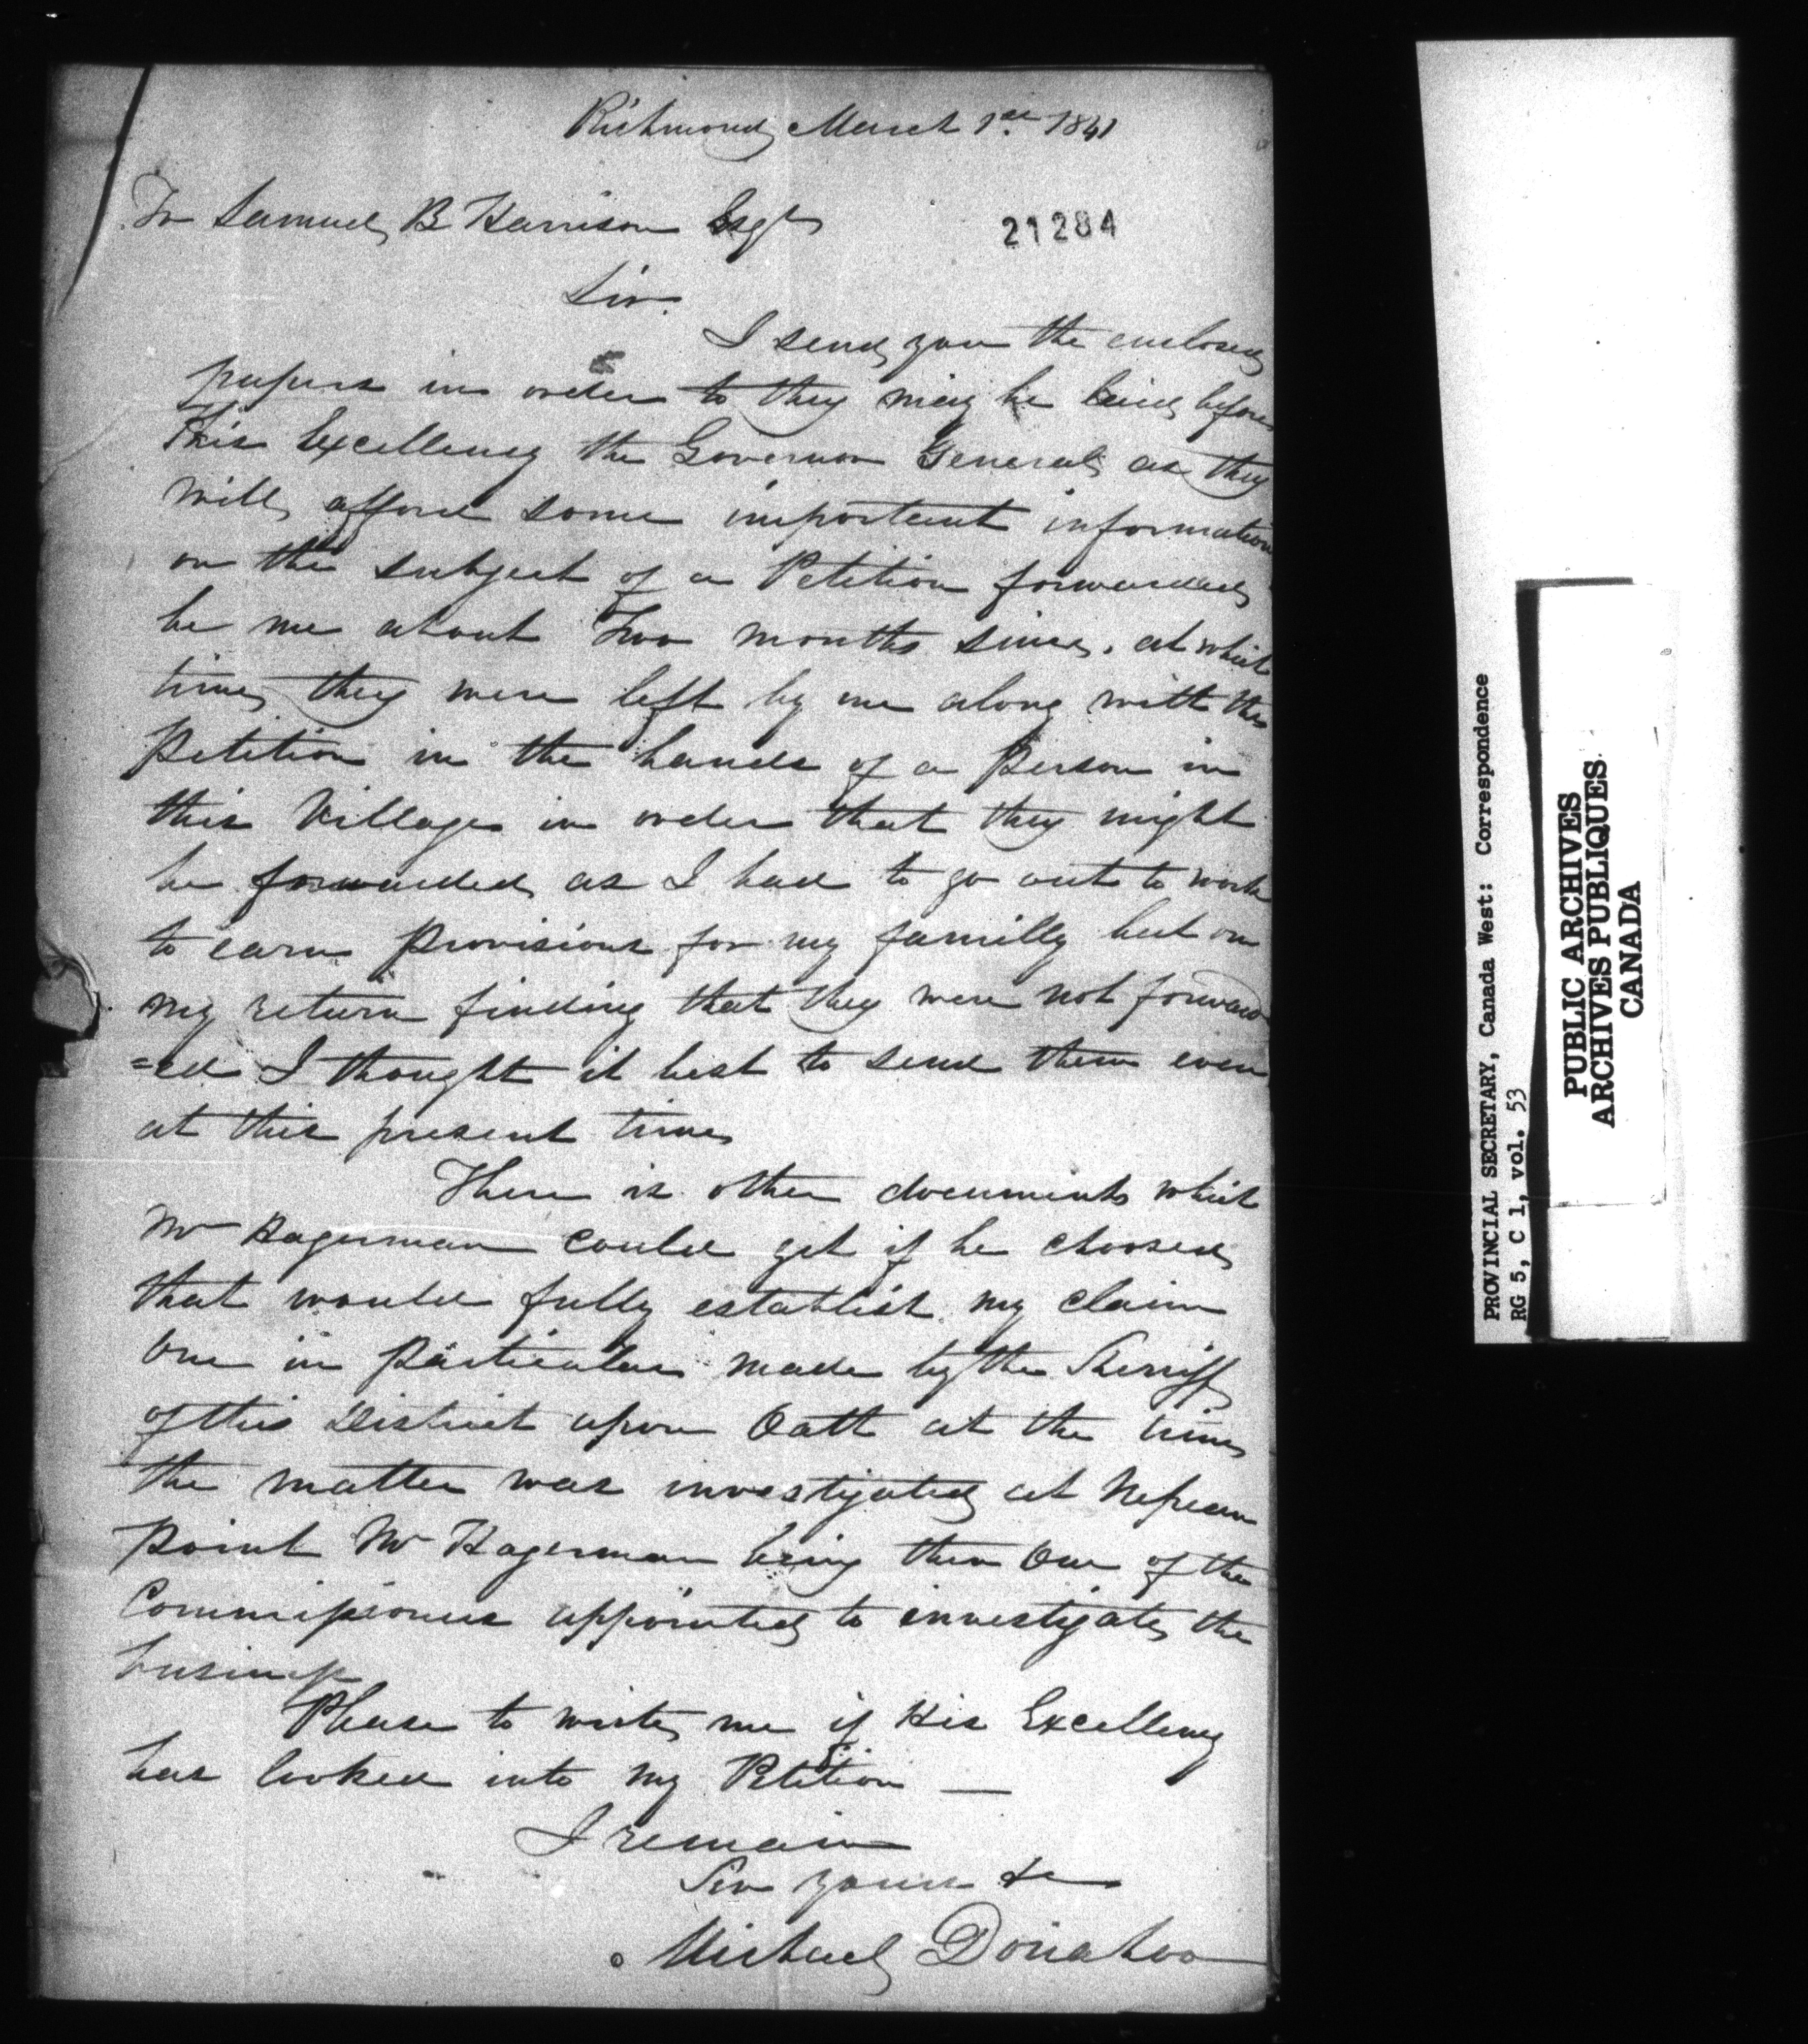 Richmond March 1st 1841
To Samuel B Harrison Esqr
21284
Sir.
I send you the enclosed
papers in order to they may be laid before
His Excellency the Governor General as they
will afford some important information
on the subject of a Petition forwarded
be me about Two months since. at which
time they were left by me along with the
Petition in the hands of a Person in
this Village in order that they might
be forwarded as I had to go out to work
to earn Provisions for my familly but on
my return finding that they were not forward
=ed I thought it best to send them even
at this present time
There is other documents which
Mr Hagerman could get if he choosed
that would fully establish my claim
One in Particular made by the Sherriff
of this District upon Oath at the time
the matter was investigated at Nepean
Point Mr Hagerman being then One of the
Commissioners appointed to investigate the
business
Please to write me if His Excellency
has looked into my Petition —
I remain
Sir yours &c
Michael Donahoo
PROVINCIAL SECRETARY, Canada West: Correspondence
RG 5, C 1, vol. 53
PUBLIC ARCHIVES
ARCHIVES PUBLIQUES
CANADA